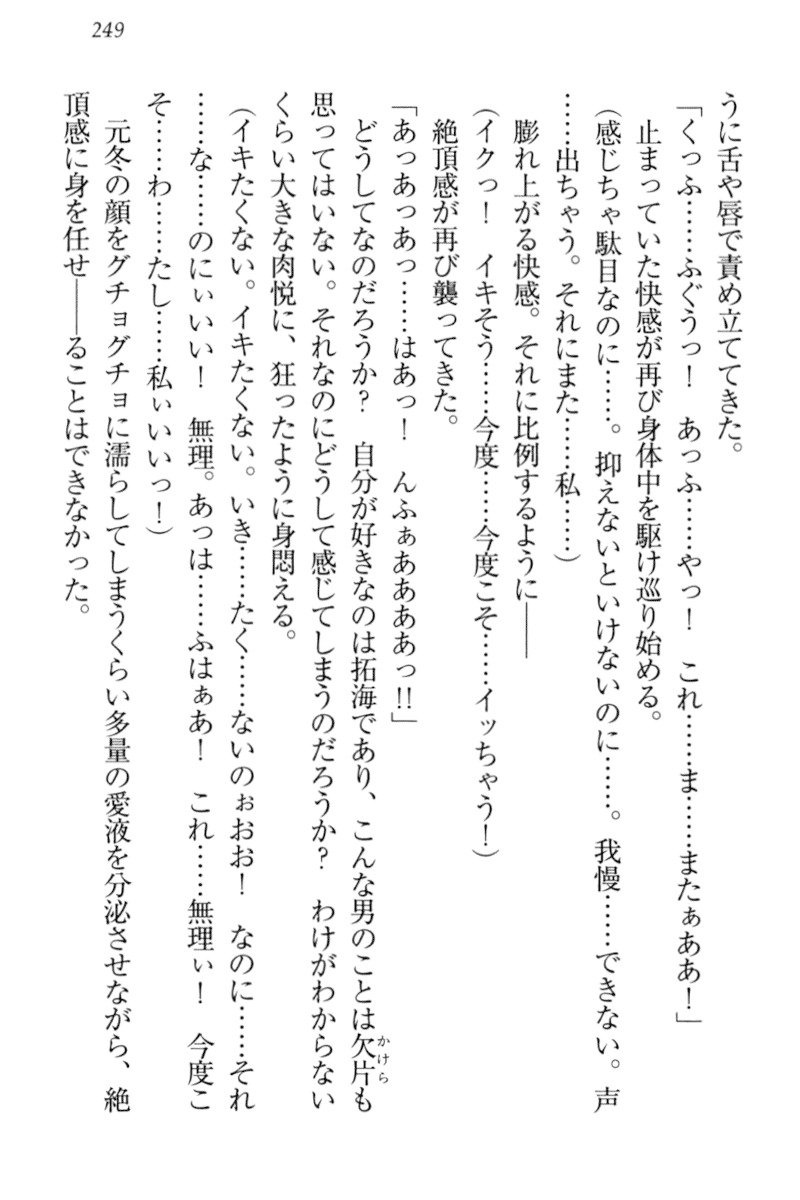 249
うに舌や唇で責め立ててきた。
「くっふ……ふぐうっ！　あっふ……やっ！　これ……ま……またぁああ！」
止まっていた快感が再び身体中を駆け巡り始める。
（感じちゃ駄目なのに……。抑えないといけないのに……。我慢……できない。声
……出ちゃう。それにまた……私……）
膨れ上がる快感。それに比例するように――
（イクっ！　イキそう……今度……今度こそ……イッちゃう！）
絶頂感が再び襲ってきた。
「あっあっあっ……はあっ！　んふぁああああっ!!」
どうしてなのだろうか？　自分が好きなのは拓海であり、こんな男のことは欠片も
かけら
思ってはいない。それなのにどうして感じてしまうのだろうか？　わけがわからない
くらい大きな肉悦に、狂ったように身悶える。
（イキたくない。イキたくない。いき……たく……ないのぉおお！　なのに……それ
……な……のにぃいい！　無理。あっは……ふはぁあ！　これ……無理ぃ！　今度こ
そ……わ……たし……私ぃいいっ！）
元冬の顔をグチョグチョに濡らしてしまうくらい多量の愛液を分泌させながら、絶
頂感に身を任せ――ることはできなかった。